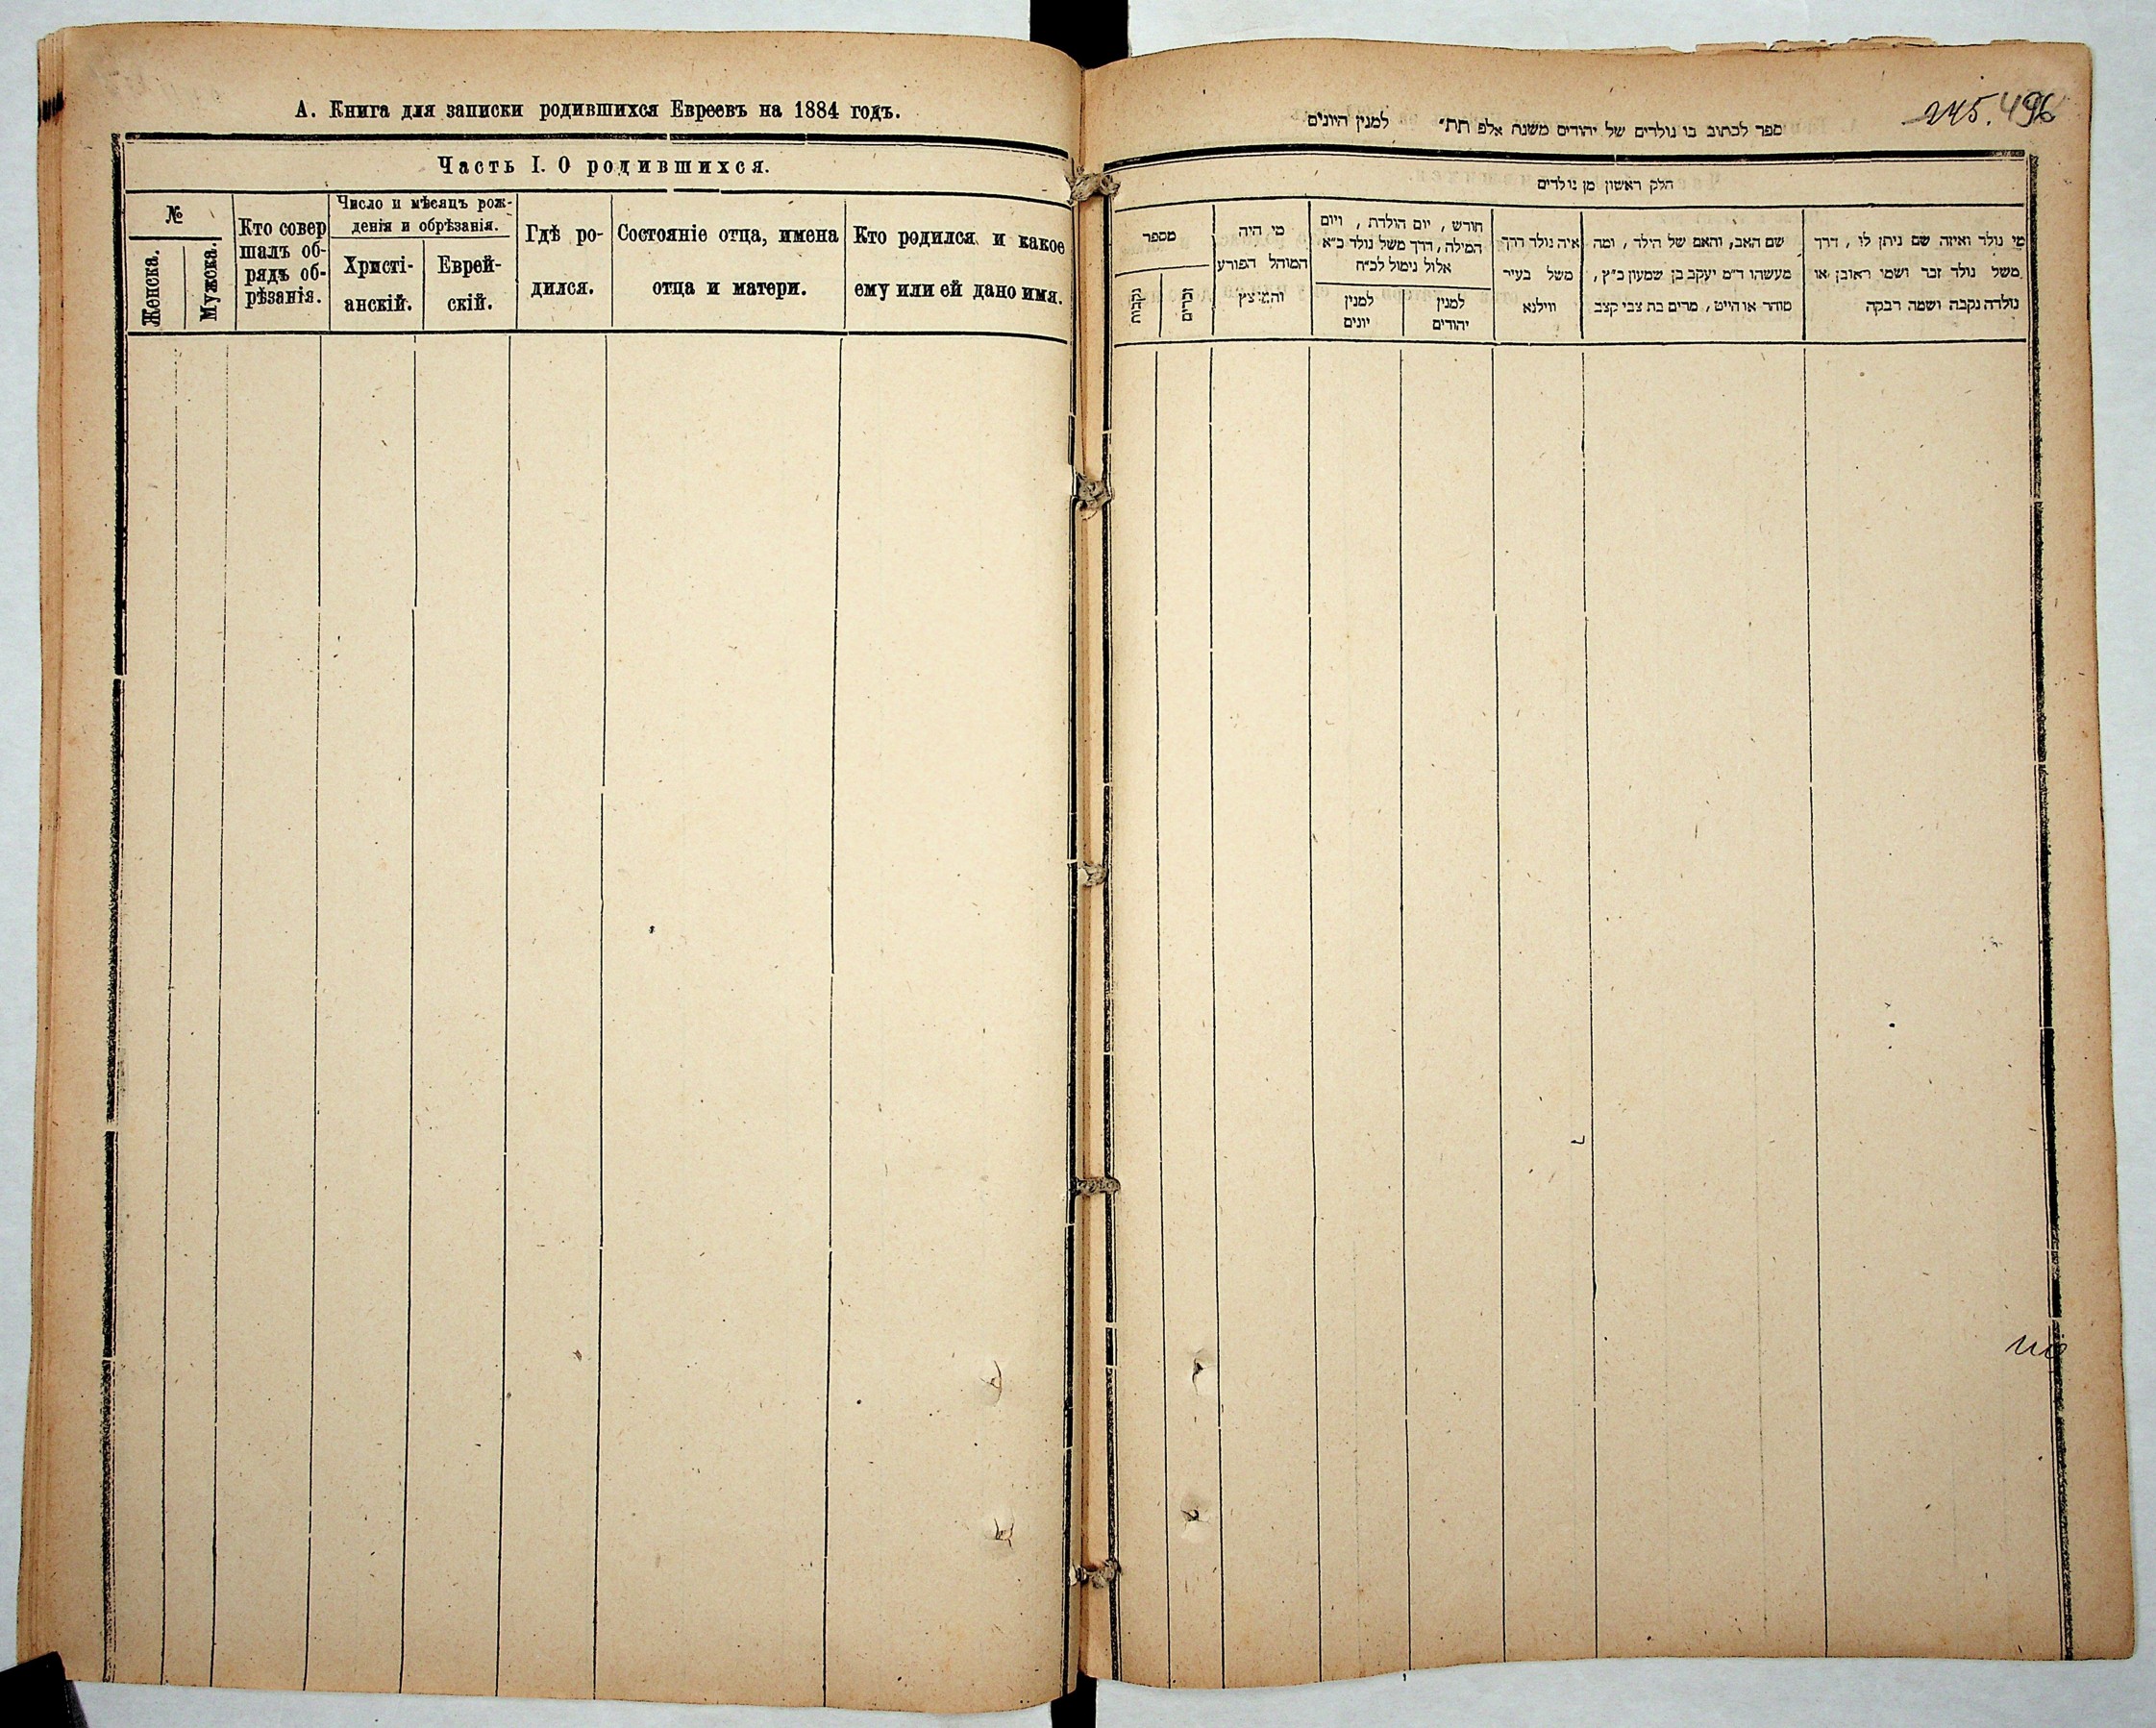 А. Книга для записки родившихся Евреевъ на 1884 годъ.
Часть I. О родившихся.
№
Женска.
Мужска.
Кто совер
шалъ об-
рядъ об-
рѣзанія.
Число и мѣсяцъ рож-
денія и обрѣзанія.
Христі-
анскій.
Еврей-
скій.
Гдѣ ро-
дился.
Состояніе отца, имена
отца и матери.
Кто родился и какое
ему или ей дано имя.
245. 496
ספר לכתוב בו נולדים של יהודים משנת אלפ תת״ למנין היונים
חלק ראשון מן נולדים
מספר
נקבות
זכרים
מי היה
המוהל הפורע
והמוצץ
חורש , יום הולדת , ויום
המילה , דרך משל נולד כ״א
אלול נימול לכ״ח
למנין
יונים
למנין
יהודים
איה נולד דרך
משל בעיר
ווילנא
שם האב, והאם של הילד , ומה
מעשהו ד״מ יעקב בן שמעון כ״ץ ,
סוהר או הייט , מרים בת צבי קצב
מי נולד ואיזה שם ניתן לו , דרך
משל נולד זכר ושמו ראובן או
נולדה נקבה ושמה רבקה